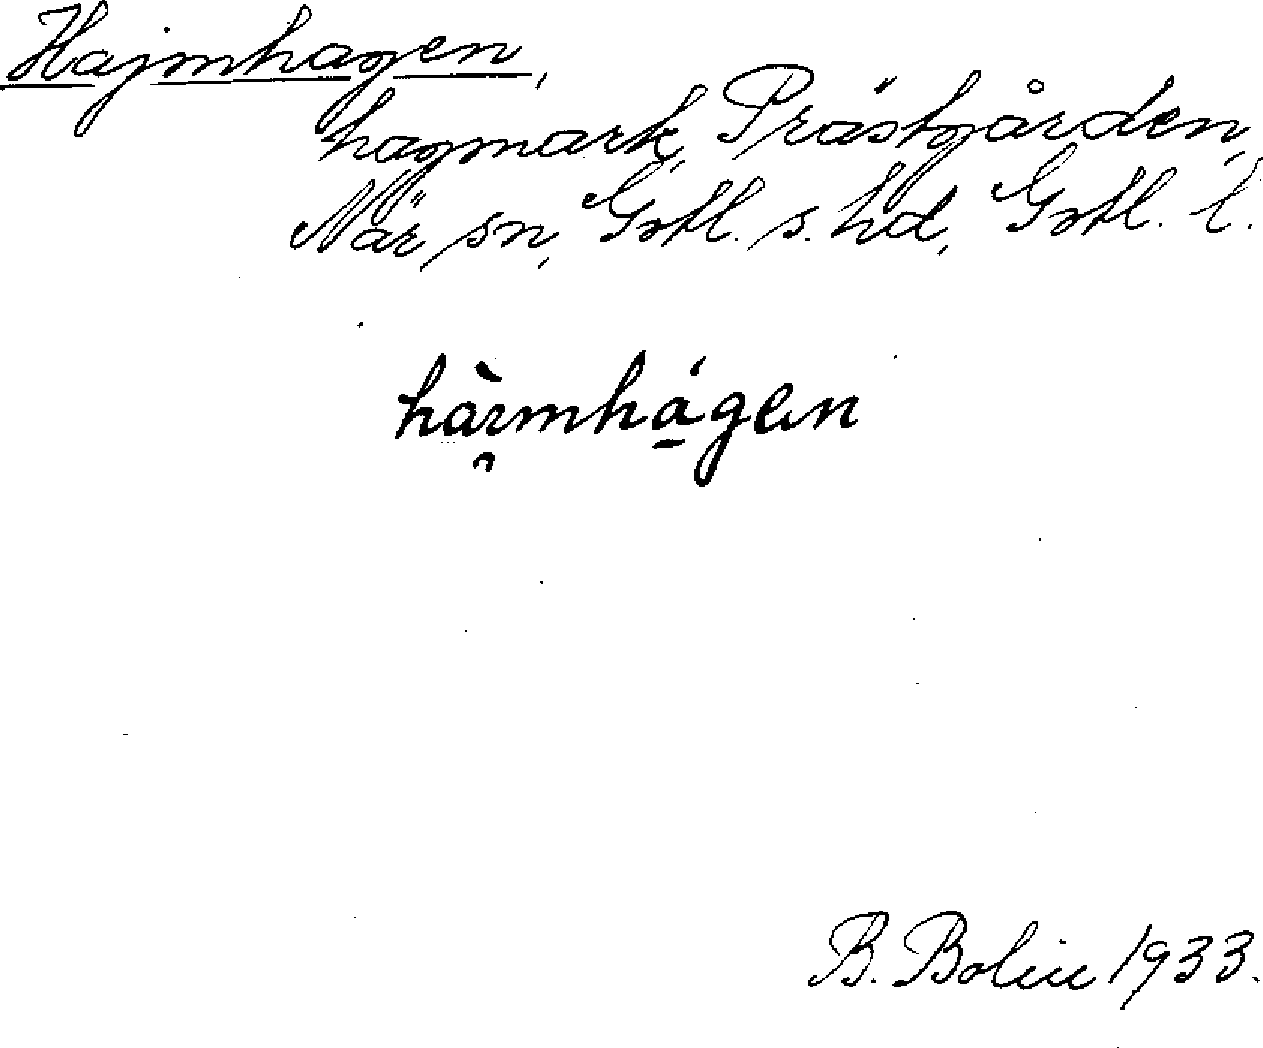 Hajmhagen,
hagmark, Prästgården,
När sn, Gotl. s. hd, Gotl. l.
hàımhágen
B. Bolin 1933.